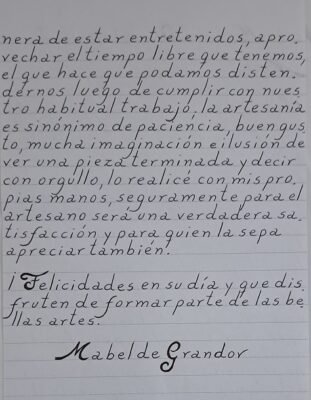 nera de estar entretenidos, apro.
vechar el tiempo libre que tenemos,
el que hace que podamos disten.
dernos luego de cumplir con nues
tro habitual trabajo. la artesanía
es sinónimo de paciencia, buen gus
to, mucha imaginación e ilusión de
ver una pieza terminada y decir
con orgullo, lo realicé con mis pro.
pias manos, seguramente para el
artesano será una verdadera sa.
tisfacción y para quien la sepa
apreciar también!.
¡ Felicidades en su día y que dis.
fruten de formar parte de las be.
llas artes.
Mabel de Grandov